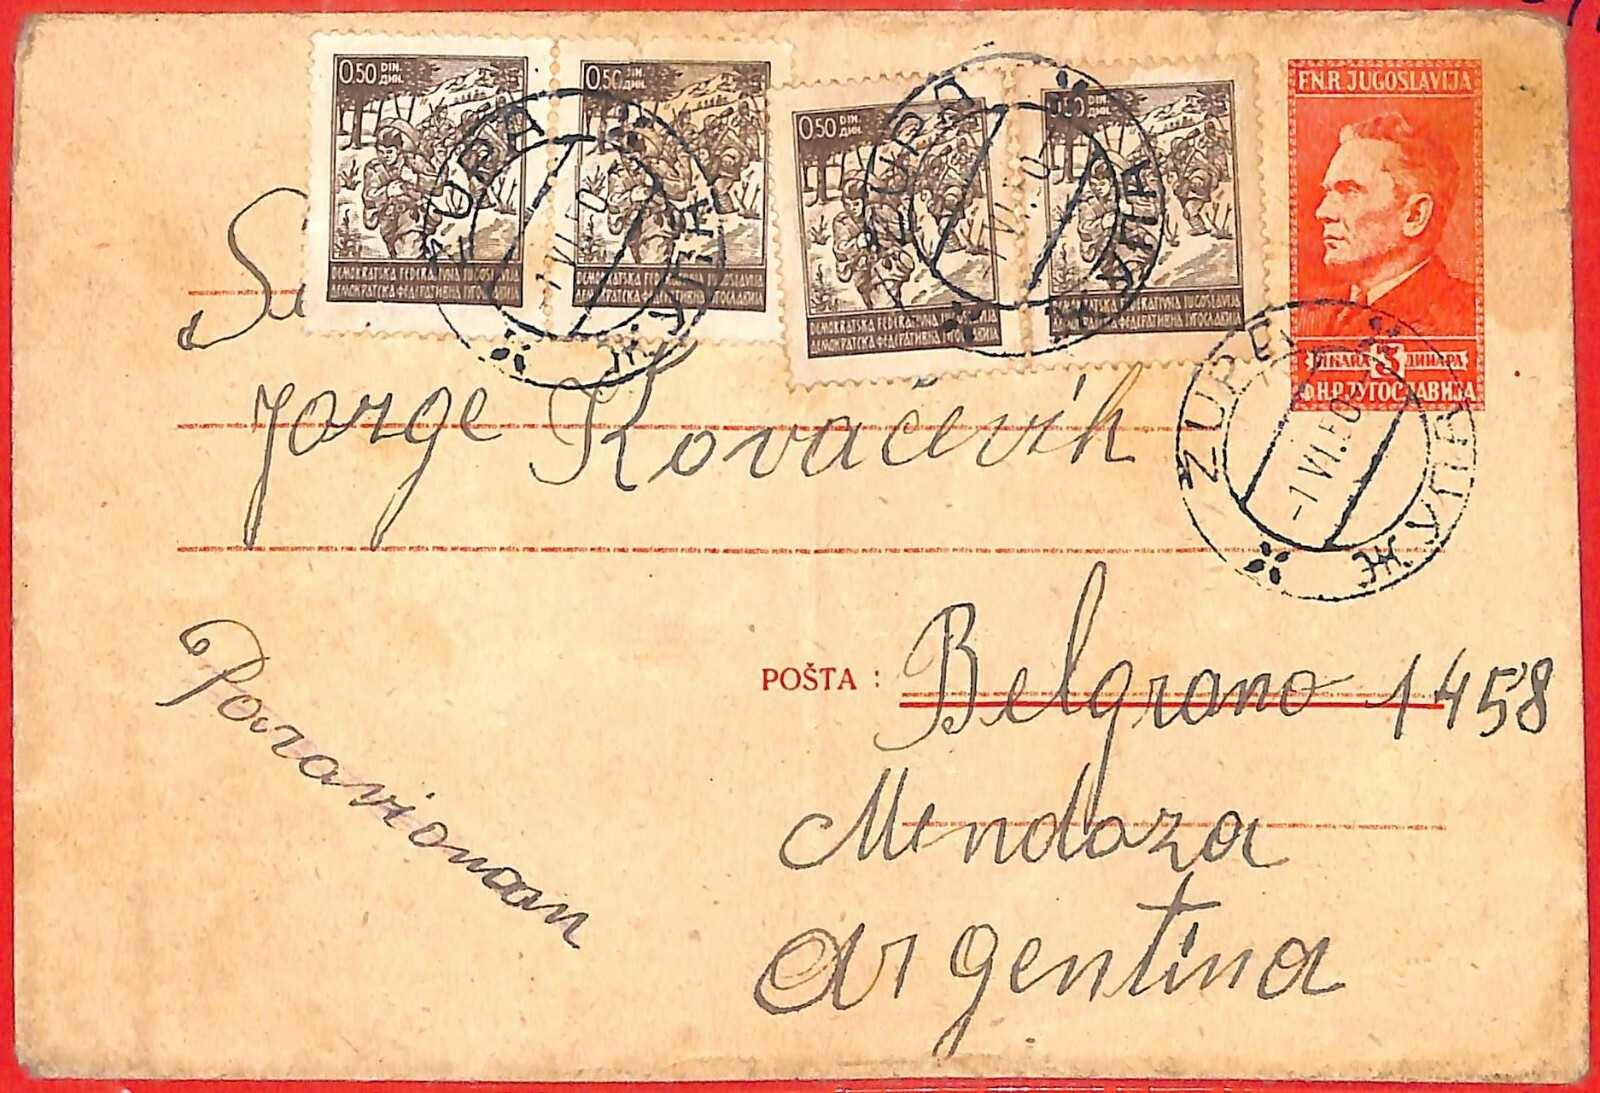 0.50 DIN. ДИН.
DEMOKRATSKA FEDERATIVNA JUGOSLAVIJA
ДЕМОКРАТСКА ФЕДЕРАТИВНА ЈУГОСЛАВИЈА
0.50 DIN. ДИН.
DEMOKRATSKA FEDERATIVNA JUGOSLAVIJA
ДЕМОКРАТСКА ФЕДЕРАТИВНА ЈУГОСЛАВИЈА
0.50 DIN. ДИН.
DEMOKRATSKA FEDERATIVNA JUGOSLAVIJA
ДЕМОКРАТСКА ФЕДЕРАТИВНА ЈУГОСЛАВИЈА
0.50 DIN. ДИН.
DEMOKRATSKA FEDERATIVNA JUGOSLAVIJA
ДЕМОКРАТСКА ФЕДЕРАТИВНА ЈУГОСЛАВИЈА
F.N.R. JUGOSLAVIJA
DINARA 3 ДИНАРА
Ф.Н.Р. ЈУГОСЛАВИЈА
-1 VI.50
-1 VI.50
-1 VI.50
Jorge Kovačevih
POŠTA : Belgrano 1458
Mendoza
Argentina
Paravionom